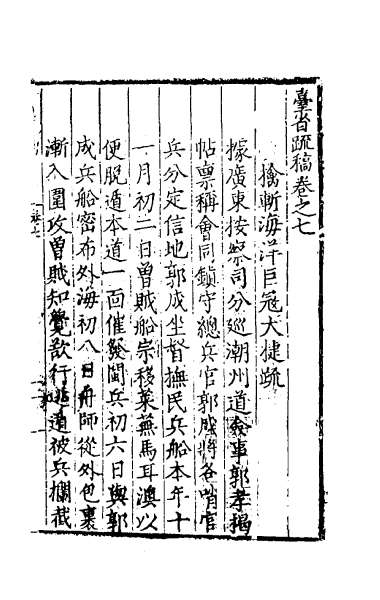 臺省疏稿卷之七
擒斬海洋巨寇大捷疏
據廣東按察司分巡潮州道僉事郭孝揭
帖禀稱會同鎮守總兵官郭成將各哨官
兵分定信地郭成坐督撫民兵船本年十
一月初二日曾賊船宗移萊蕪馬耳澳以
便脫遁本道一面催發閩兵初六日與郭
成兵船密布外海初八日舟師從外包裹
漸入圍攻曾賊知覺欲行逃遁被兵攔截